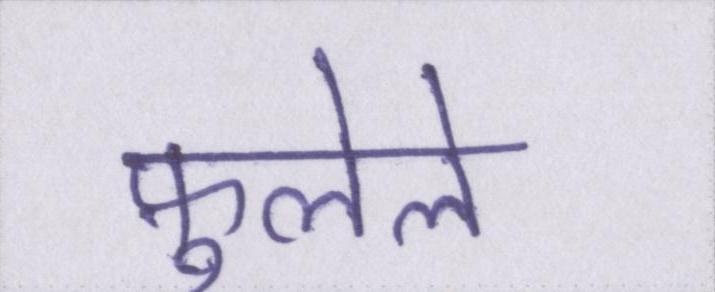 फुलेले